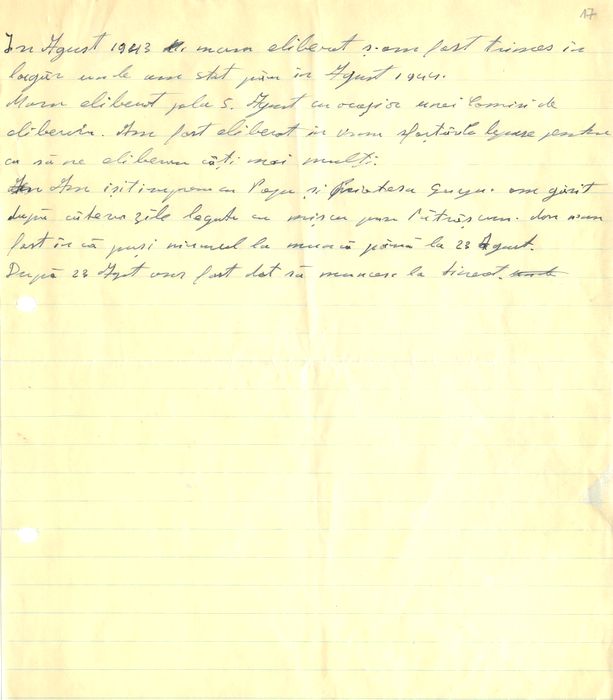 17
In Agust 1943 mam eliberat s-am fost trimes in
lagăr unde am stat pân in Agust 1944.
Mam eliberat pela 5. Agust cu ocazia unei Comisi de
eliberări. Am fost eliberat in urma sfortările depuse pentru
ca să ne eliberăm câți mai mulți.
Am isit impreuna cu Popa și Gugu. am găsit
după câteva zile legatu cu mișcu prin Pătrășcanu. don nam
fost in că puși nimenul la muncă până la 23 Agust.
După 23 Agst am fost dat să muncesc la tineret.